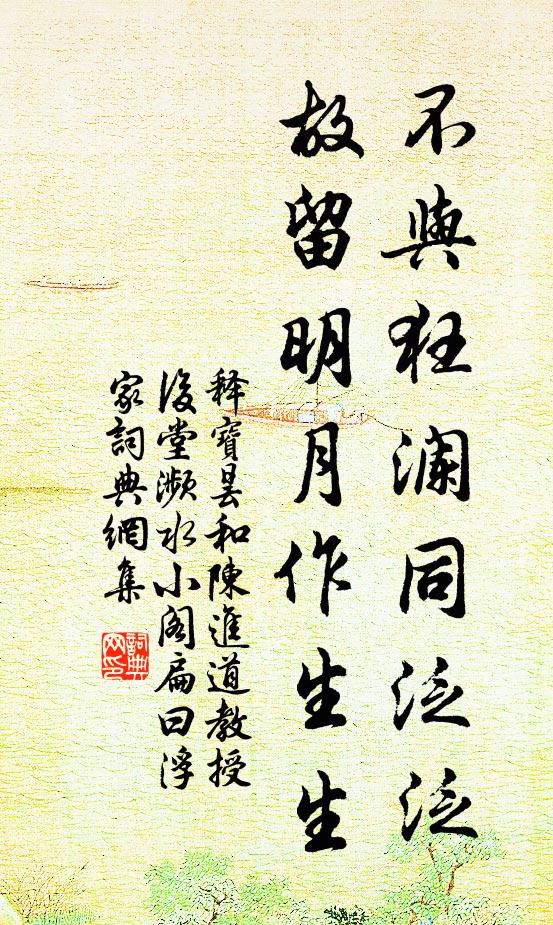 不與狂瀾同泛泛
故留明月作生生
釋寶曇和陳進道教授
後堂瀕水小閣扁曰浮
家詞典網集
詞典
网印